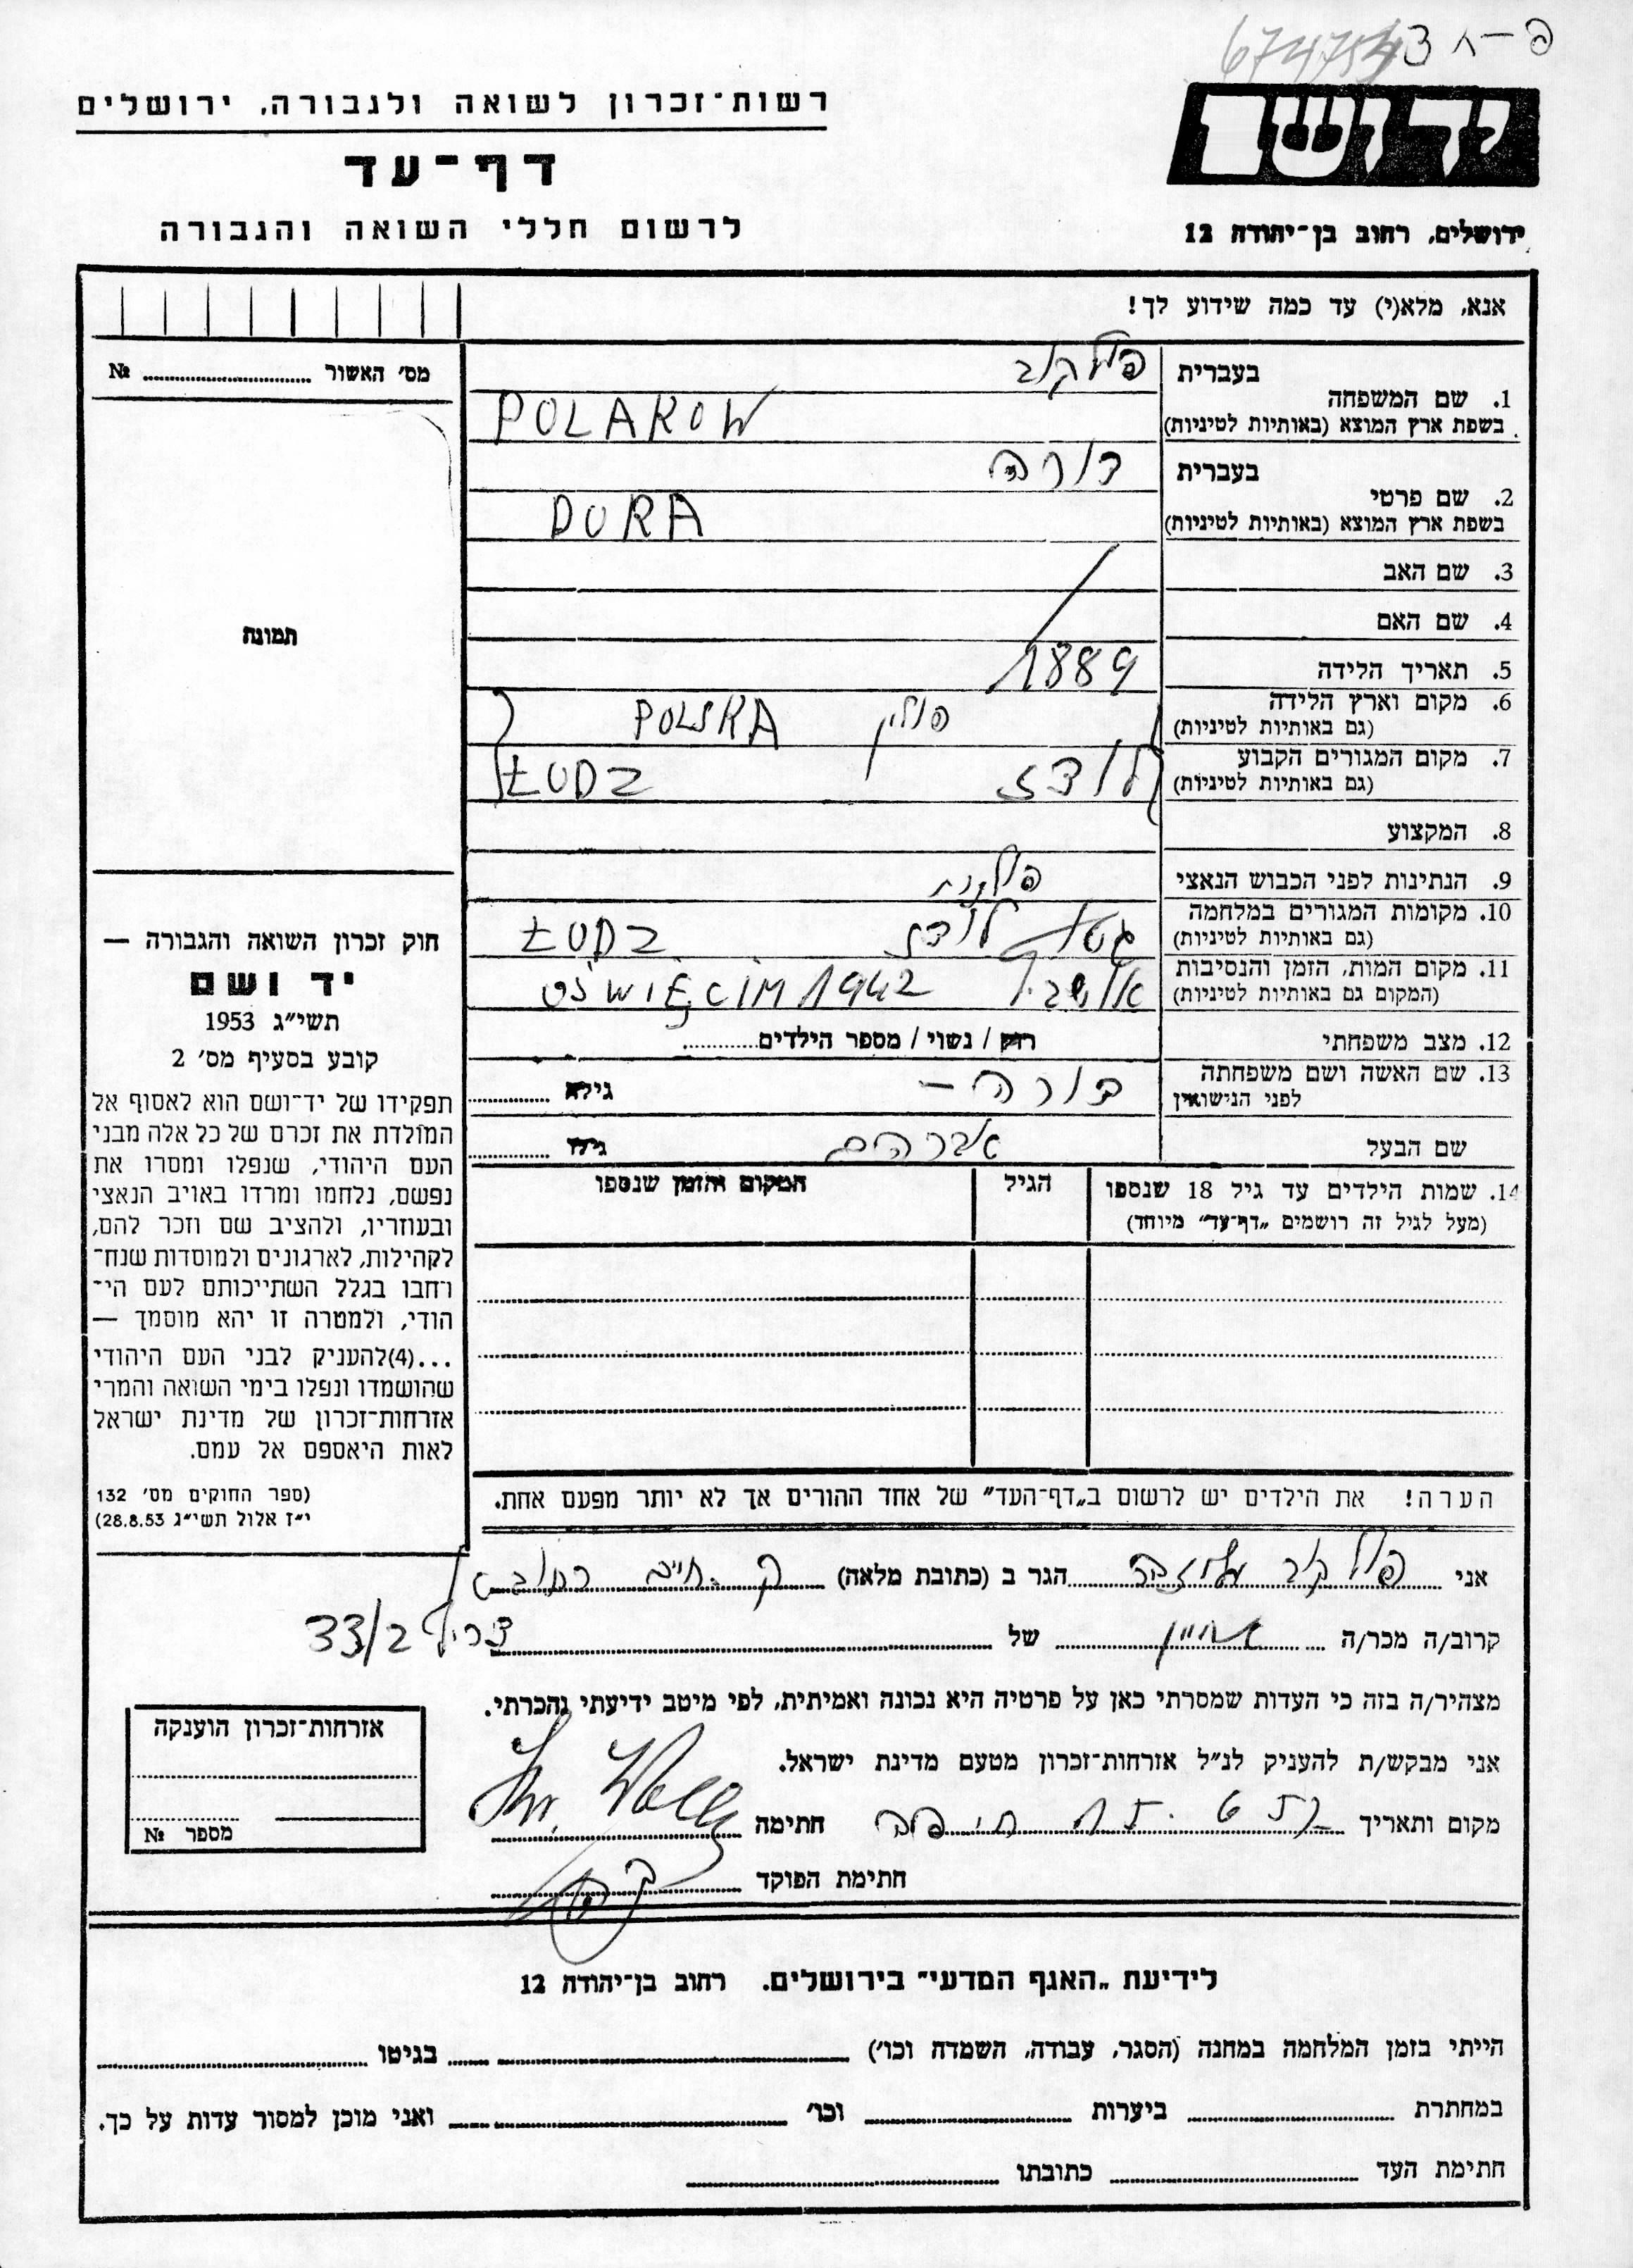 674754 פ — ח 3
רשות־זכרון לשואה ולגבורה, ירושלים
יד ושם
דף־עד
לרשום חללי השואה והגבורה
ירושלים, רחוב בן־יהודה 12
אנא, מלא(י) עד כמה שידוע לך!
מס׳ האשור № 
1. שם המשפחה
בעברית פולקוב
בשפת ארץ המוצא (באותיות לטיניות) POLAKOW
2. שם פרטי
בעברית דורה
בשפת ארץ המוצא (באותיות לטיניות) DORA
3. שם האב
4. שם האם
5. תאריך הלידה 1889
6. מקום וארץ הלידה
(גם באותיות לטיניות) פולין POLSKA
7. מקום המגורים הקבוע
(גם באותיות לטיניות) לודז ŁODZ
8. המקצוע
9. הנתינות לפני הכבוש הנאצי פולנית
10. מקומות המגורים במלחמה
(גם באותיות לטיניות) גטו לודז ŁODZ
11. מקום המות, הזמן והנסיבות
(המקום גם באותיות לטיניות) 1942 OŚWIĘCIM
12. מצב משפחתי רוק / נשוי / מספר הילדים
13. שם האשה ושם משפחתה
לפני הנישואין דורה — גילא
שם הבעל אברהם גילו
14. שמות הילדים עד גיל 18 שנספו הגיל המקום והזמן שנספו
(מעל לגיל זה רושמים „דף־עד״ מיוחד)
הערה! את הילדים יש לרשום ב„דף־העד״ של אחד ההורים אך לא יותר מפעם אחת.
תמונה
חוק זכרון השואה והגבורה —
יד ושם
תשי״ג 1953
קובע בסעיף מס׳ 2
תפקידו של יד־ושם הוא לאסוף אל
המולדת את זכרם של כל אלה מבני
העם היהודי, שנפלו ומסרו את
נפשם, נלחמו ומרדו באויב הנאצי
ובעוזריו, ולהציב שם וזכר להם,
לקהילות, לארגונים ולמוסדות שנח־
רחבו בגלל השתייכותם לעם הי־
הודי, ולמטרה זו יהא מוסמך —
...(4)להעניק לבני העם היהודי
שהושמדו ונפלו בימי השואה והמרי
אזרחות־זכרון של מדינת ישראל
לאות היאספם אל עמם.
(ספר החוקים מס׳ 132
י״ז אלול תשי״ג 28.8.53)
אני פולקוב הגר ב (כתובת מלאה) ק. חיים
קרוב/ה מכר/ה של צריף 33/2
מצהיר/ה בזה כי העדות שמסרתי כאן על פרטיה היא נכונה ואמיתית, לפי מיטב ידיעתי והכרתי.
אני מבקש/ת להעניק לנ״ל אזרחות־זכרון מטעם מדינת ישראל.
מקום ותאריך חיפה חתימה
חתימת הפוקד
אזרחות־זכרון הוענקה
מספר №
לידיעת „האגף המדעי״ בירושלים. רחוב בן־יהודה 12
הייתי בזמן המלחמה במחנה (הסגר, עבודה, השמדה וכו׳) בגיטו
במחתרת ביערות וכו׳ ואני מוכן למסור עדות על כך.
חתימת העד כתובתו